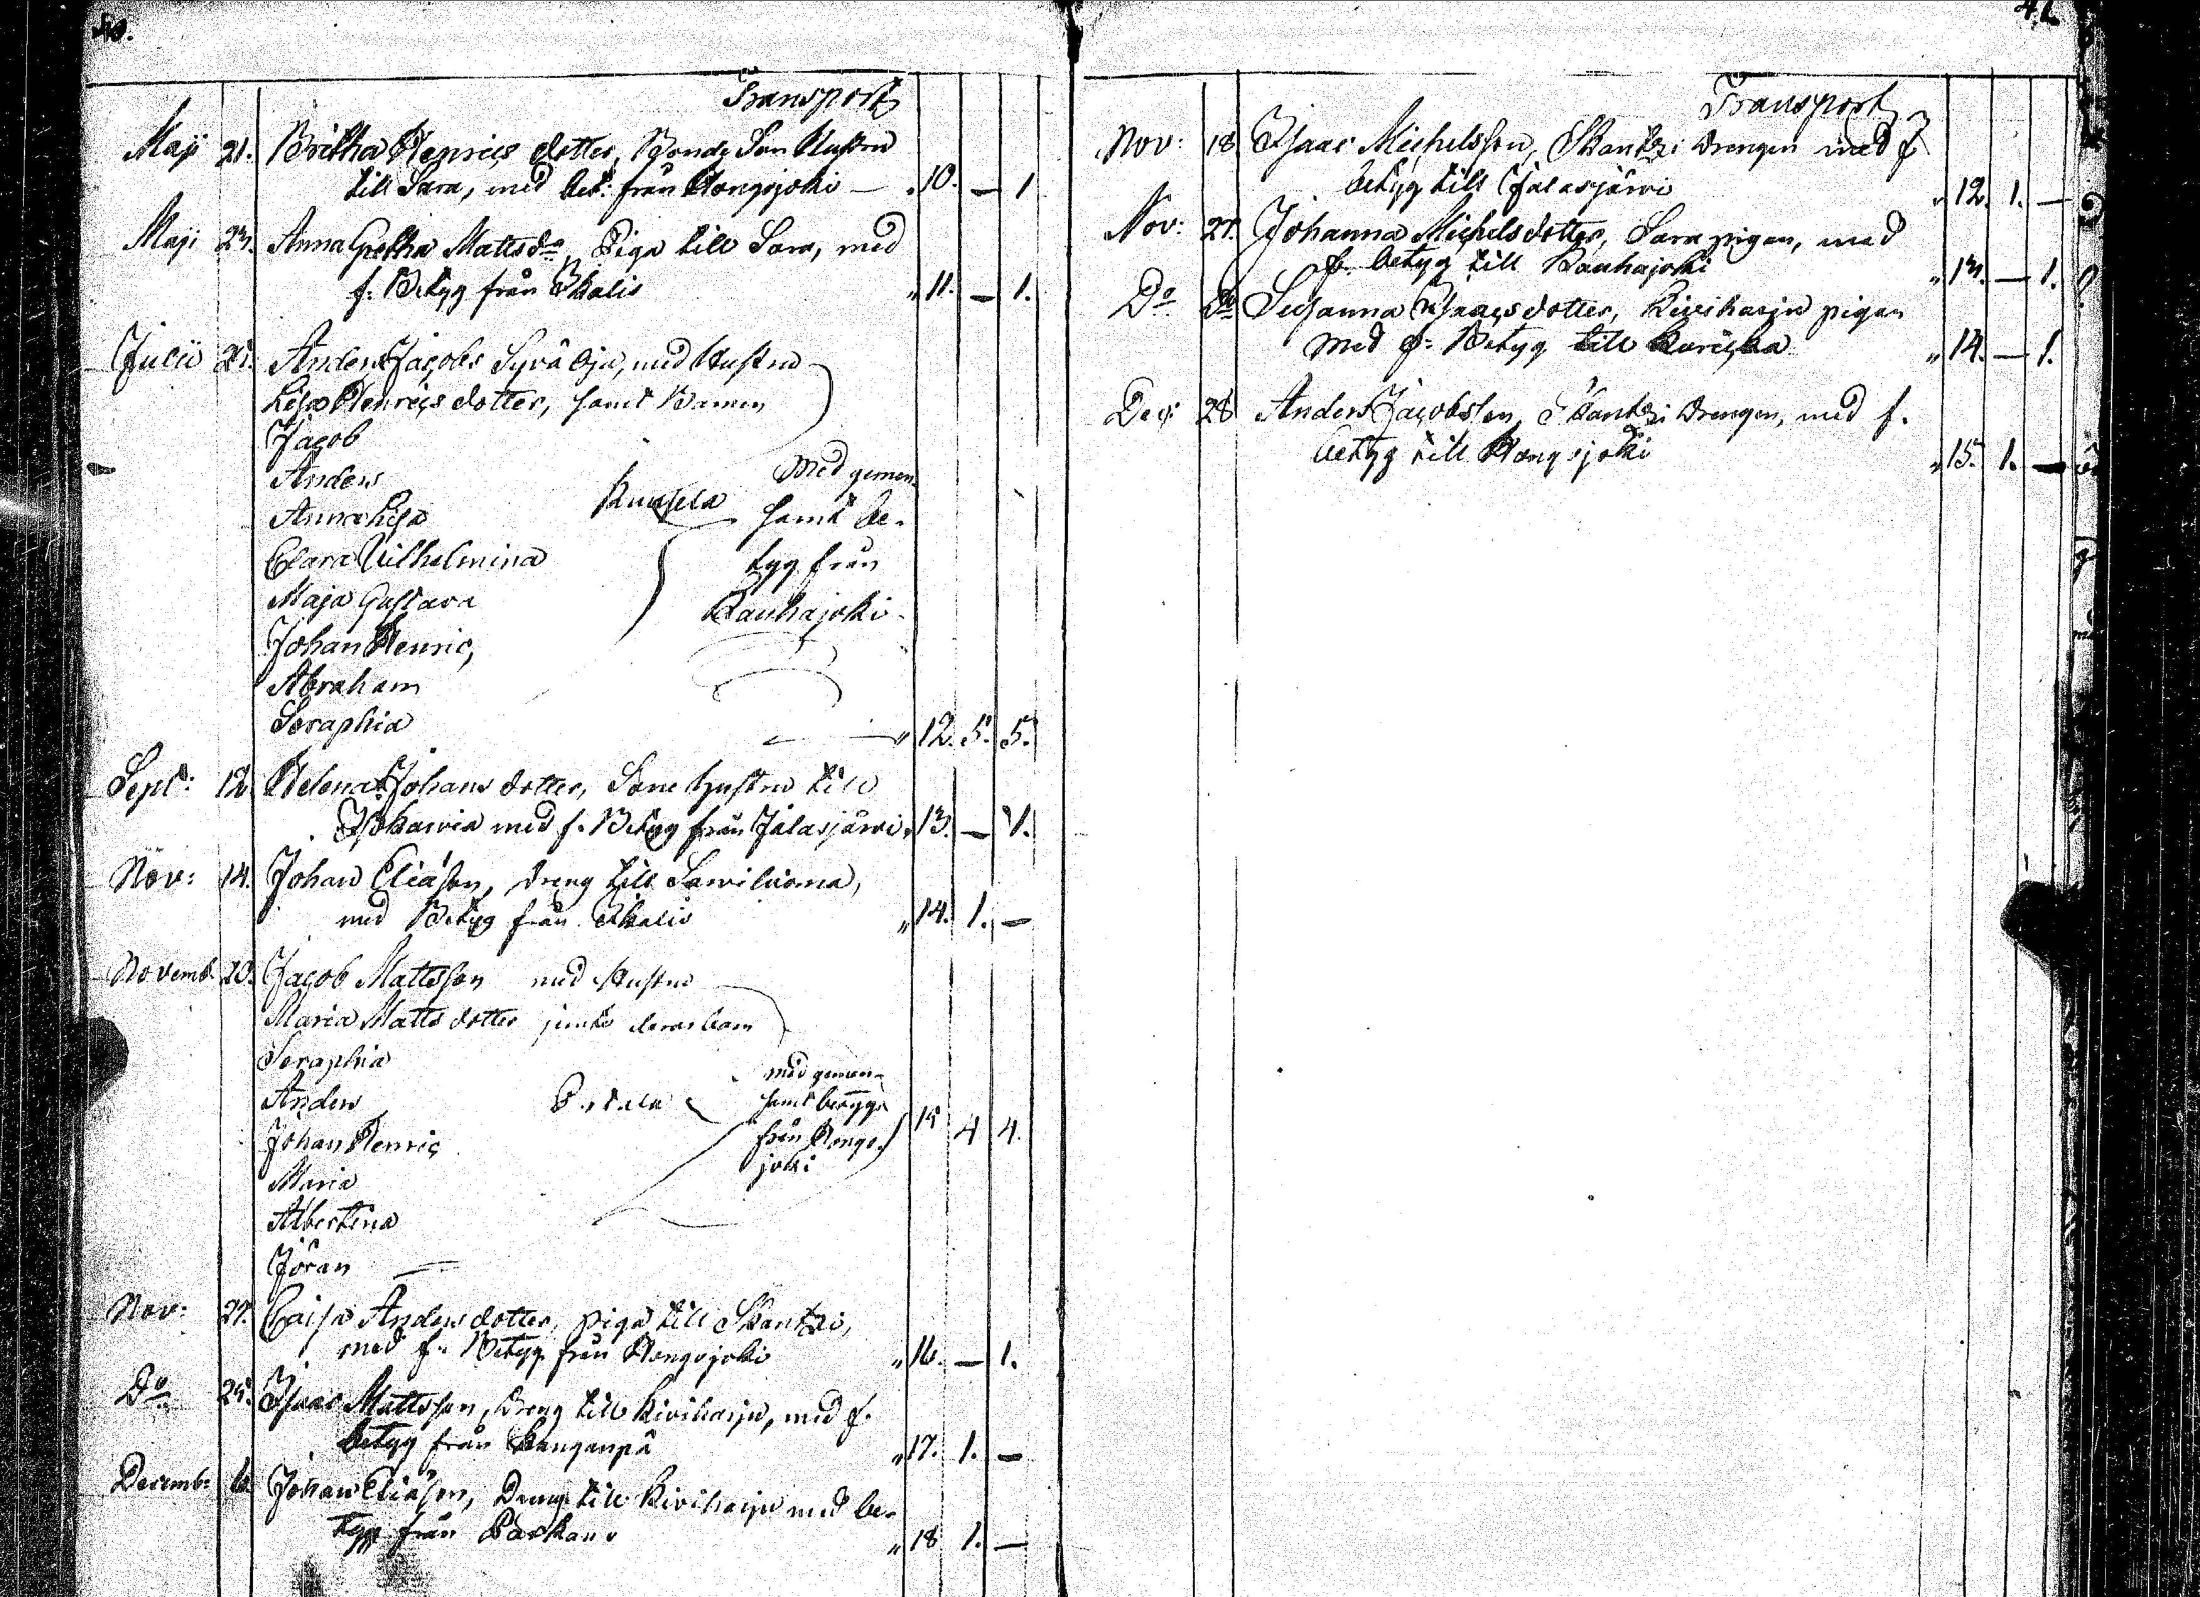 40.
Transport
Maji 21. Britha Henrics dotter, Bonde Son Hustru
till Sara, med bet: från Hongojoki — " 10. — 1
Maji 23. Anna Gretha Mattsdr, Piga till Sara, med
f: Betyg från Ikalis " 11. — 1.
Julii 25. Anders Jacobs Syvä Oja, med Hustru
Lisa Henrics dotter, samt Barnen
Jacob
Anders Med gemen-
Anna Lisa samt be-
Clara Wilhelmina tyg från
Maja Gustava Kauhajoki
Johan Henric,
Abraham
Seraphia " 12. 5. 5.
Sept: 12 Helena Johans dotter, Sone hustru till
med f. Betyg från Jalasjärvi " 13. — 1.
Nov: 14. Johan Eliasson, dreng till Saviluoma,
med Betyg från Ikalis " 14. 1. —
Novemb. 20. Jacob Mattsson med Hustru
Maria Matts dotter jemte deras barn
Seraphia
Anders med gemen-
Johan Henric samt betyg
Maria från Hongo-
Albertina joki 15 4 4.
Jöran
Nov: 27. Caisa Anders dotter, piga till Skantzi,
med f. Betyg från Hongojoki " 16. — 1.
Do 25. Isaac Mattsson, Dreng till Kiviharju, med f.
betyg från Kanganpä " 17. 1. —
Decemb: 6 Johan Eliasson, Dreng till Kiviharju med be-
tyg från Parkano " 18 1. —
41.
Transport
Nov: 18 Isaac Michelsson, Skantzi Drengen med f
betyg till Jalasjärvi " 12. 1. —
Nov: 27. Johanna Michelsdotter, Sara pigan, med
f. betyg till Kauhajoki " 13. — 1.
Do Do Susanna Isaacsdotter, Kiviharju pigan
med f: Betyg till Kurikka " 14. — 1.
Dec: 28 Anders Jacobsson, Skantzi Drengen, med f.
betyg till Hongojoki " 15. 1. —